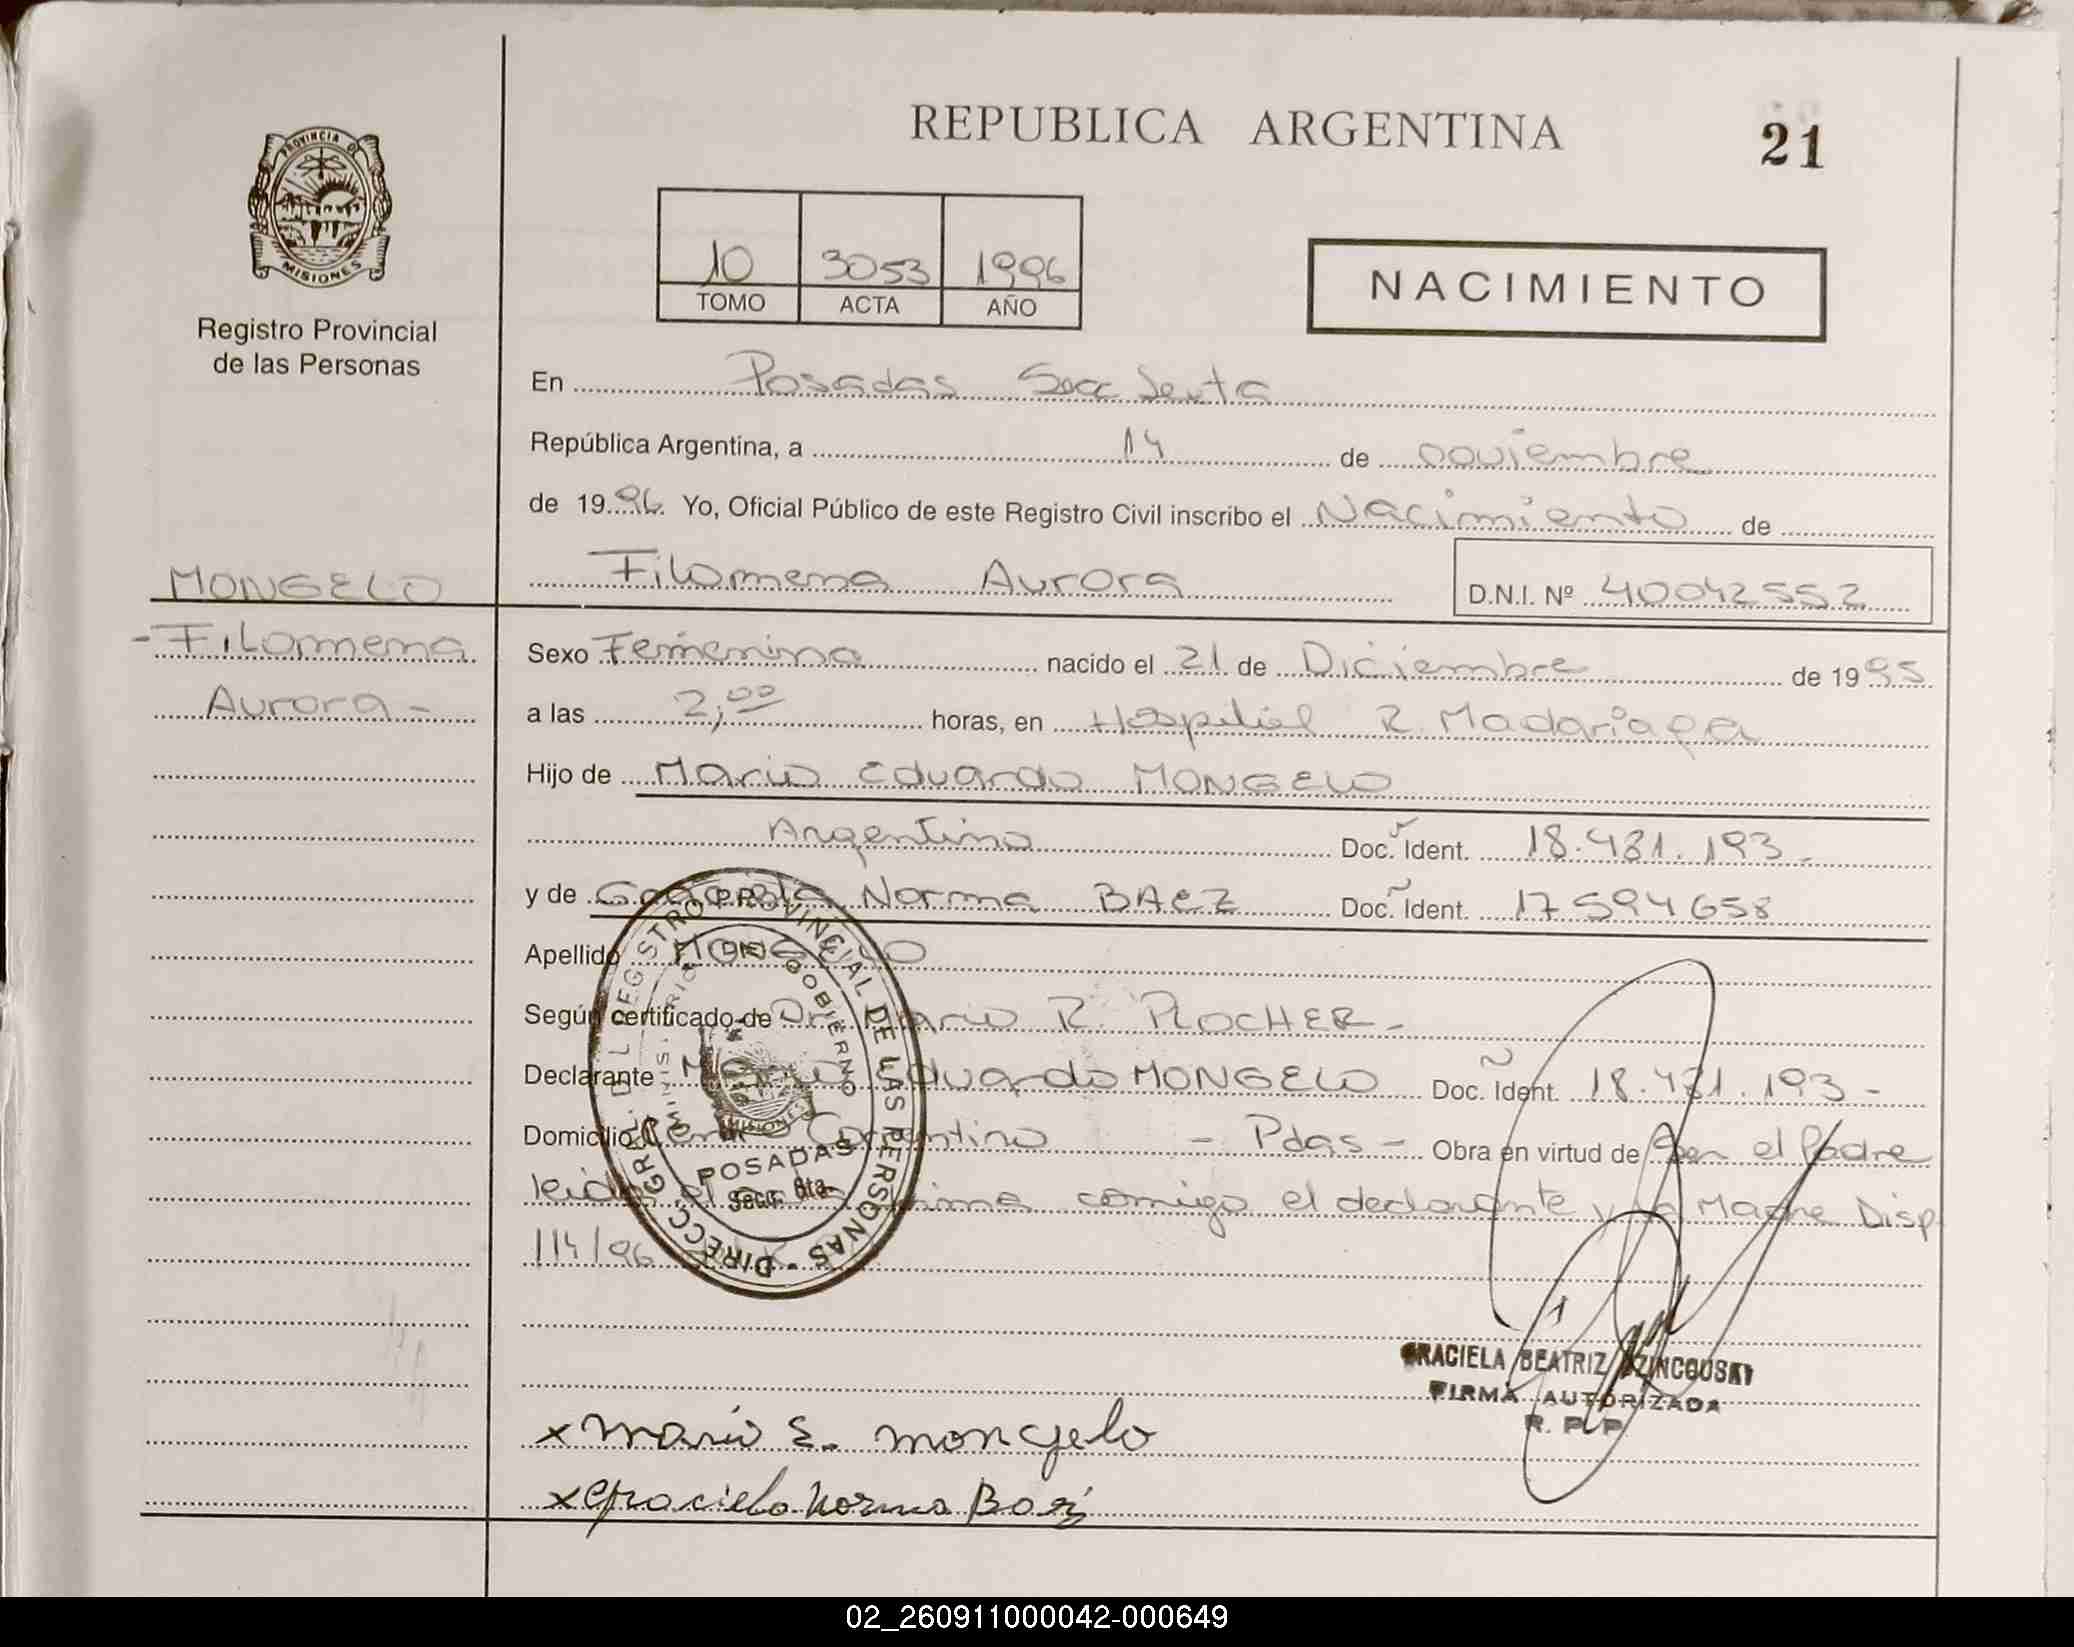 REPUBLICA ARGENTINA
21
PROVINCIA DE
MISIONES
Registro Provincial
de las Personas
10 3053 1996
TOMO ACTA AÑO
NACIMIENTO
En Posadas Secc Sexta
República Argentina, a 14 de noviembre
de 1996. Yo, Oficial Público de este Registro Civil inscribo el Nacimiento de
Filomena Aurora D.N.I. Nº 40042552
MONGELO
- Filomena
Aurora -
Sexo Femenina nacido el 21 de Diciembre de 1995
a las 2,00 horas, en Hospital R. Madariaga
Hijo de Mario Eduardo MONGELO
Argentino Doc. Ident. 18.431.193-
y de Graciela Norma BAEZ Doc. Ident. 17594658
Apellido MONGELO
Según certificado de Dr. Mario R. PLOCHER-
Declarante Mario Eduardo MONGELO Doc. Ident. 18.431.193-
Domicilio Corrientino - Pdas - Obra en virtud de Ser el Padre
leida el firma comigo el declarante y la Madre Disp
114/96
DIRECC. GRAL. DEL REGISTRO PROVINCIAL DE LAS PERSONAS
MINISTERIO DE GOBIERNO
MISIONES
POSADAS
Secc. 6ta.
GRACIELA BEATRIZ
FIRMA AUTORIZADA
R. P. P.
x Mario E. Mongelo
x Graciela Norma Baez
02_260911000042-000649